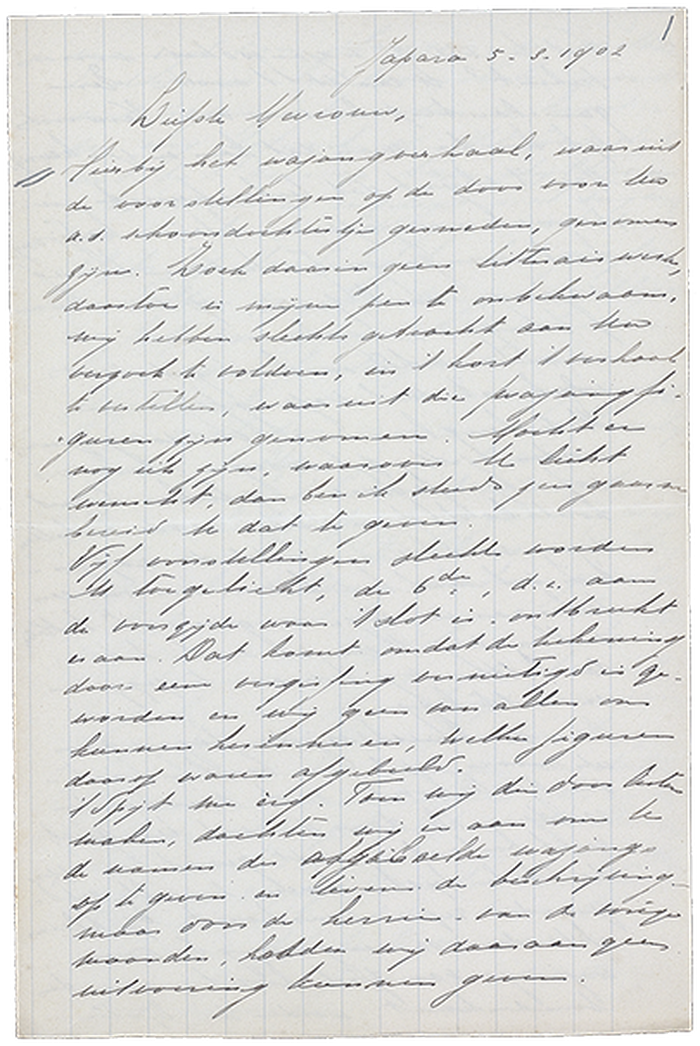 1
Japara 5-3-1902
Liefste Mevrouw,
Hierbij het wajangverhaal, waaruit
de voorstellingen op de doos voor Uw
a.s. schoondochtertje gesneden, genomen
zijn. Zoek daarin geen litterair werk,
daartoe is mijne pen te onbekwaam,
wij hebben slechts getracht aan Uw
verzoek te voldoen, in 't kort 't verhaal
te vertellen, waaruit die wajangfi-
guren zijn genomen. Mocht er
nog iets zijn, waarover U licht
wenscht, dan ben ik steeds zeer gaarne
bereid U dat te geven.
Vijf voorstellingen slechts worden
U toegelicht, de 6de, d.i. aan
de voorzijde waar 't slot is ontbreekt
eraan. Dat komt omdat de tekening
door een vergissing vernietigd is ge-
worden en wij geen van allen ons
kunnen herinneren, welke figuren
daarop waren afgebeeld.
't Spijt me erg. Toen wij die doos lieten
maken, dachten wij er aan om U
de namen der afgebeelde wajangs
op te geven en tevens de beschrijving
maar door de herrie van de vorige
maanden, hebben wij daaraan geen
uitvoering kunnen geven.